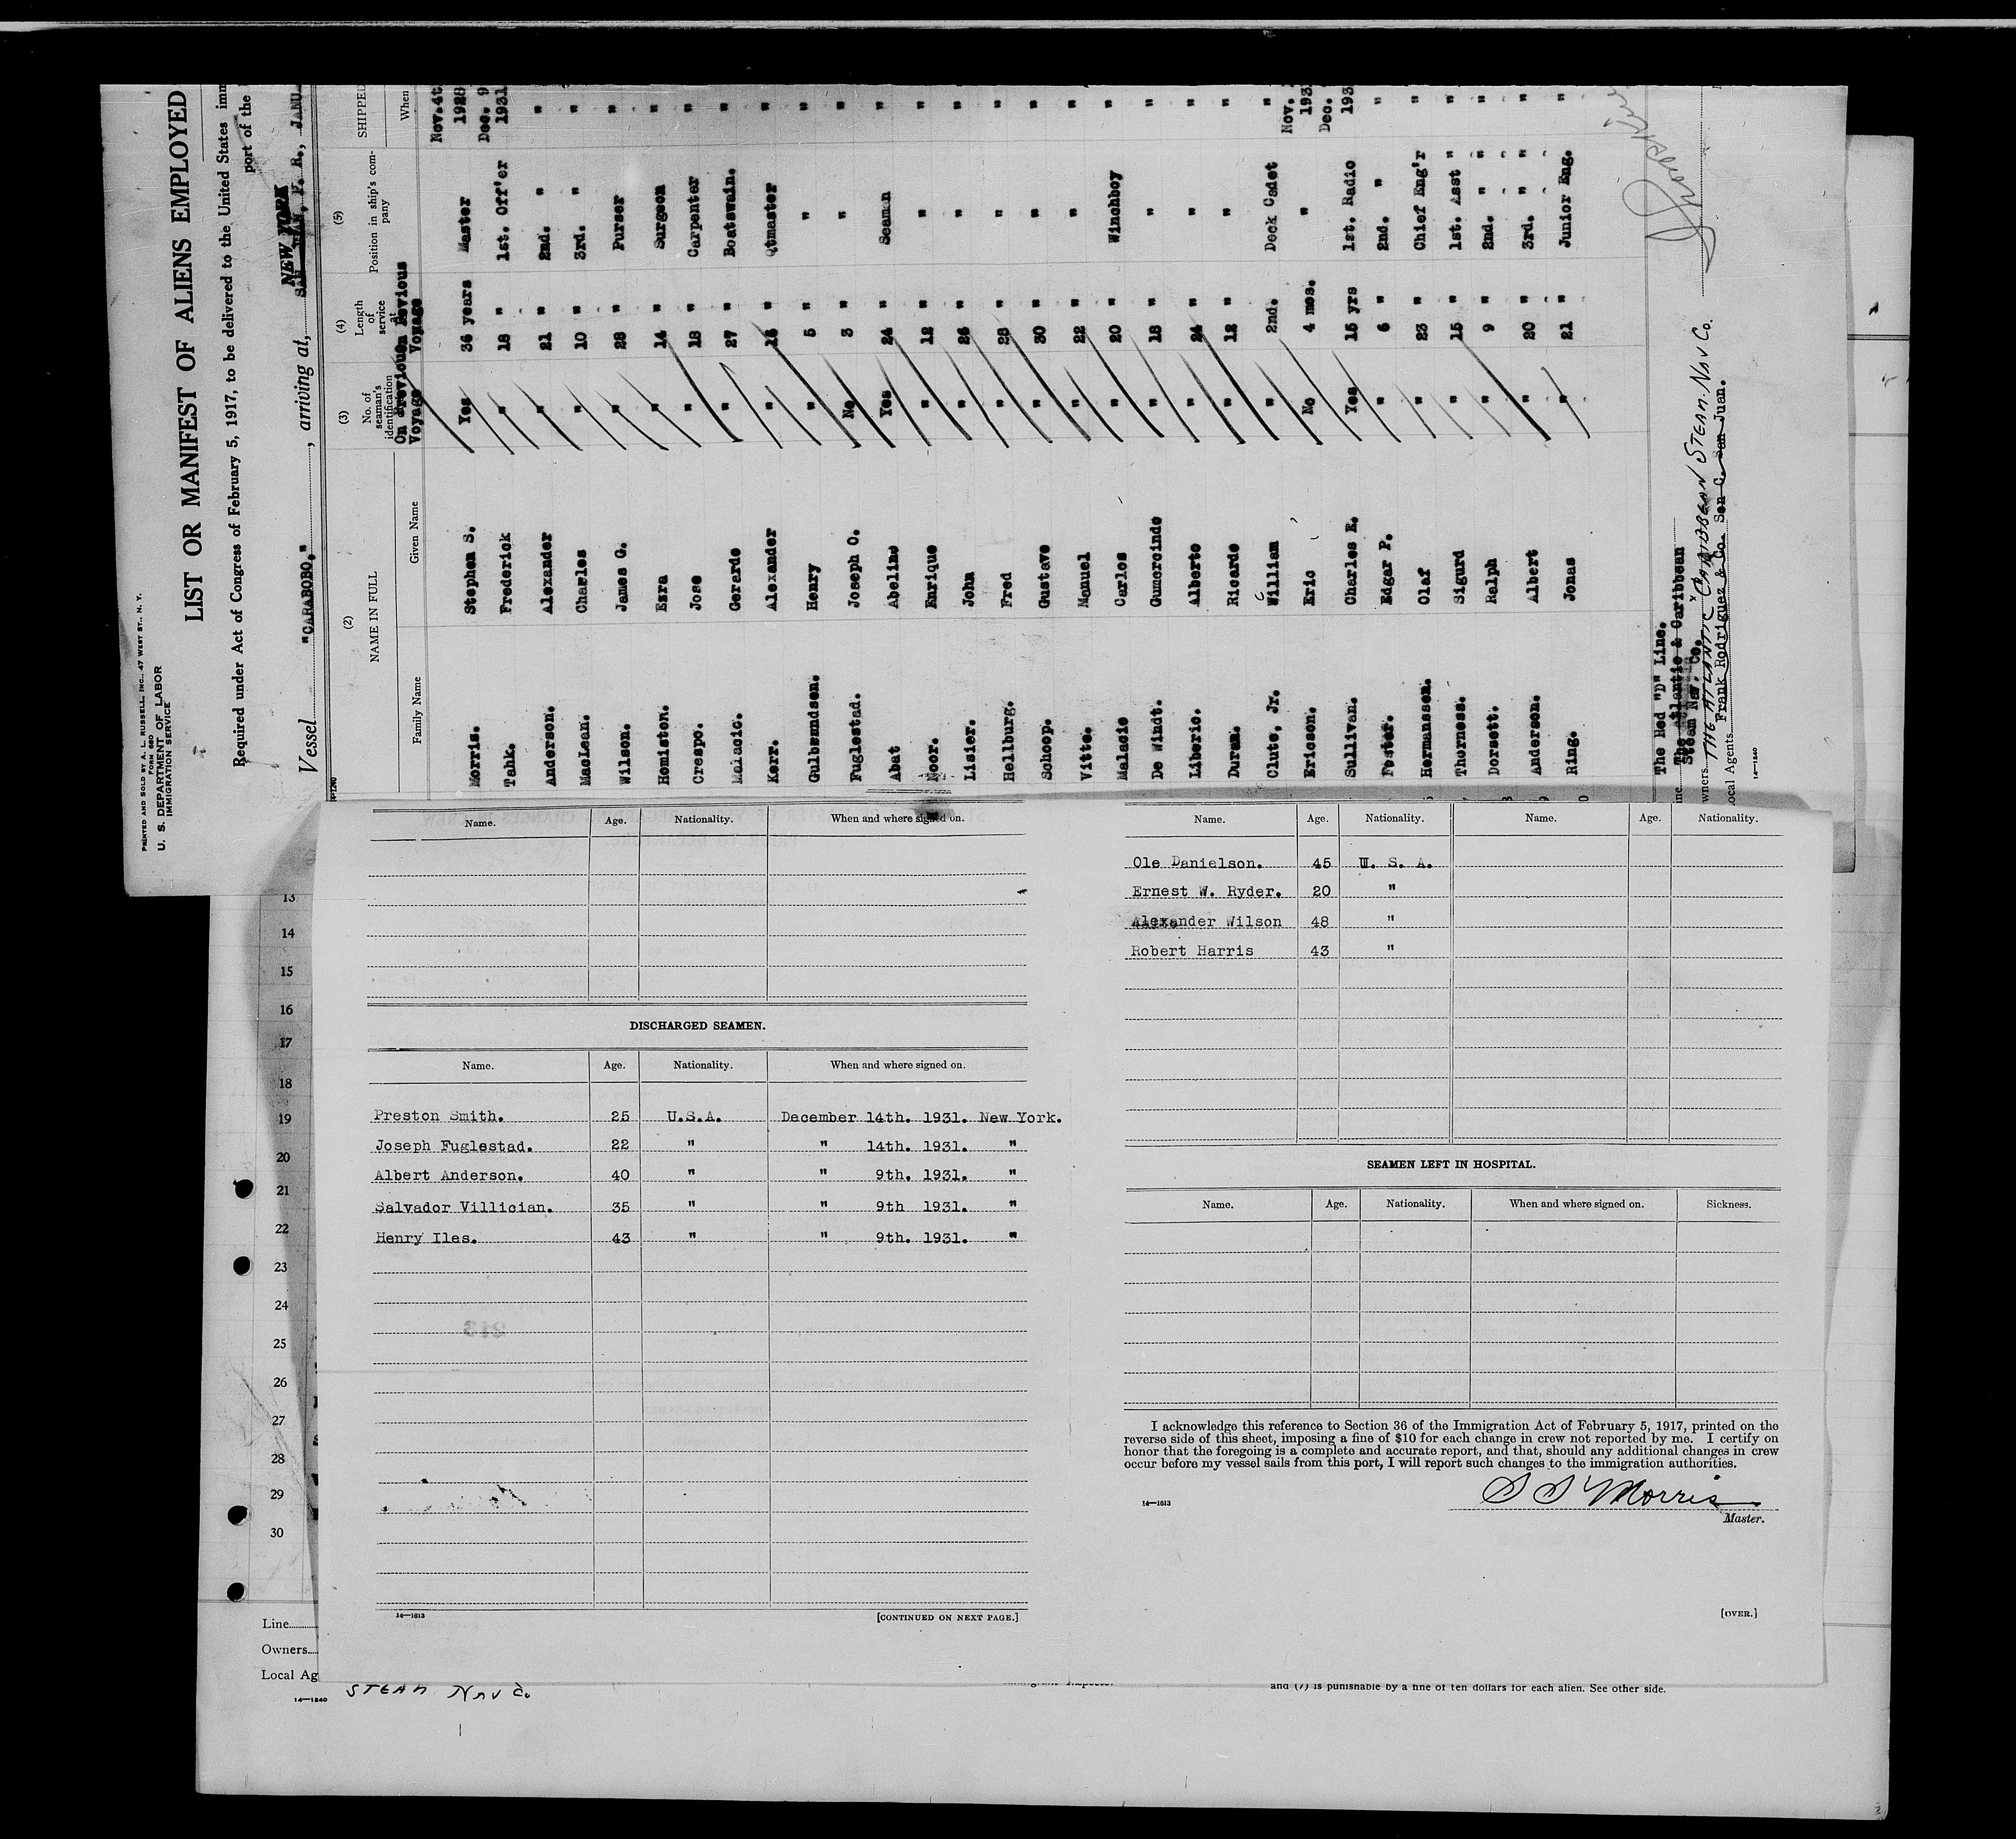 PRINTED AND SOLD BY A. L. RUSSELL, INC., 47 WEST ST., N. Y.
FORM 680
U. S. DEPARTMENT OF LABOR
IMMIGRATION SERVICE
LIST OR MANIFEST OF ALIENS EMPLOYED
Required under Act of Congress of February 5, 1917, to be delivered to the United States imm
port of the
NEW YORK
Vessel "CARABOBO," , arriving at, SAN JUAN, P. R., JANU
(2) (3) (4) (5)
NAME IN FULL No. of seaman's identification Length of service at Position in ship's company SHIPPED
Family Name Given Name On Previous Voyage On Previous Voyage When
Morris. Stephen S. Yes 36 years Master Nov.4t 1928
Tahk. Frederick " 18 " 1st. Off'er Dec. 9 1931
Anderson. Alexander " 21 " 2nd. " "
MacLean. Charles " 10 " 3rd. " "
Wilson. James G. " 28 " Purser "
Homiston. Ezra " 14 " Surgeon "
Crespo. Jose " 18 " Carpenter "
Malacic. Gerardo " 27 " Boatswain. "
Kerr. Alexander " 16 " Qtmaster "
Gulbrandsen. Henry " 5 " " "
Fuglestad. Joseph O. No 3 " " "
Abat Abelino Yes 24 " Seaman "
Noor. Enrique " 12 " " "
Lisier. John " 26 " " "
Hellburg. Fred " 28 " " "
Schoop. Gustave " 30 " " "
Vitte. Manuel " 22 " " "
Malacic Carlos " 20 " Winchboy "
De Windt. Gumercindo " 18 " " "
Liberic. Alberto " 24 " " "
Duran. Ricardo " 12 " " "
Clute, Jr. William " 2nd. Deck Cadet "
Ericson. Eric No 4 mos. " Nov. 193
Sullivan. Charles E. Yes 15 yrs 1st. Radio Dec. 193
Foster. Edgar P. " 6 " 2nd. " "
Hermanssen. Olaf " 23 " Chief Eng'r "
Thorness. Sigurd " 15 " 1st. Asst " "
Dorsett. Ralph " 9 " 2nd. " " "
Anderson. Albert " 20 " 3rd. " " "
Ring. Jonas " 21 " Junior Eng. "
The Red "D" Line.
The Atlantic & Caribbean
Steam Nav. Co.
Owners THE ATLANTIC & CARIBBEAN STEAM. NAV Co.
Local Agents Frank Rodriguez & Co. Sen C. San Juan.
14—1240
Name. Age. Nationality. When and where signed on.
DISCHARGED SEAMEN.
Name. Age. Nationality. When and where signed on.
Preston Smith. 25 U.S.A. December 14th. 1931. New York.
Joseph Fuglestad. 22 " " 14th. 1931. "
Albert Anderson. 40 " " 9th. 1931. "
Salvador Villician. 35 " " 9th 1931. "
Henry Iles. 43 " " 9th. 1931. "
213
14—1613
[CONTINUED ON NEXT PAGE.]
Name. Age. Nationality. Name. Age. Nationality.
Ole Danielson. 45 U. S. A.
Ernest W. Ryder. 20 "
Alexander Wilson 48 "
Robert Harris 43 "
SEAMEN LEFT IN HOSPITAL.
Name. Age. Nationality. When and where signed on. Sickness.
I acknowledge this reference to Section 36 of the Immigration Act of February 5, 1917, printed on the
reverse side of this sheet, imposing a fine of $10 for each change in crew not reported by me. I certify on
honor that the foregoing is a complete and accurate report, and that, should any additional changes in crew
occur before my vessel sails from this port, I will report such changes to the immigration authorities.
S S Morris
Master.
14—1613
[OVER.]
13
14
15
16
17
18
19
20
21
22
23
24
25
26
27
28
29
30
Line
Owners
Local Ag
14—1240
STEAM NAV Co
and (7) is punishable by a fine of ten dollars for each alien. See other side.